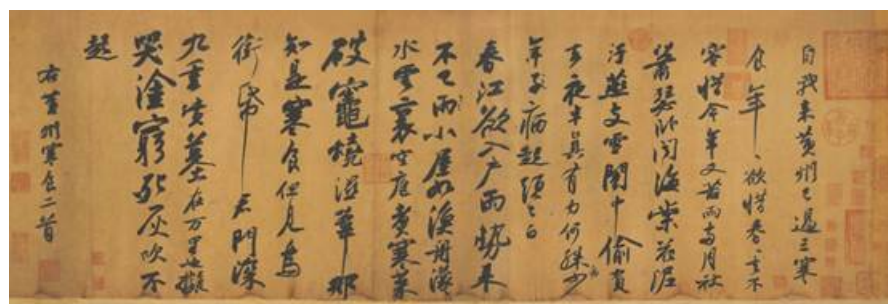 自我來黃州已過三寒
食年〻欲惜春〻去不
容惜今年又苦雨兩月秋
蕭瑟臥聞海棠花泥
汙燕支雪闇中偷負
去夜半真有力何殊少
年子病起頭已白
春江欲入戶雨勢來
不已雨小屋如漁舟濛〻
水雲裏空庖煮寒菜
破竈燒濕葦那
知是寒食但見烏
銜帋君門深
九重墳墓在万里也擬
哭塗窮死灰吹不
起
右黃州寒食二首